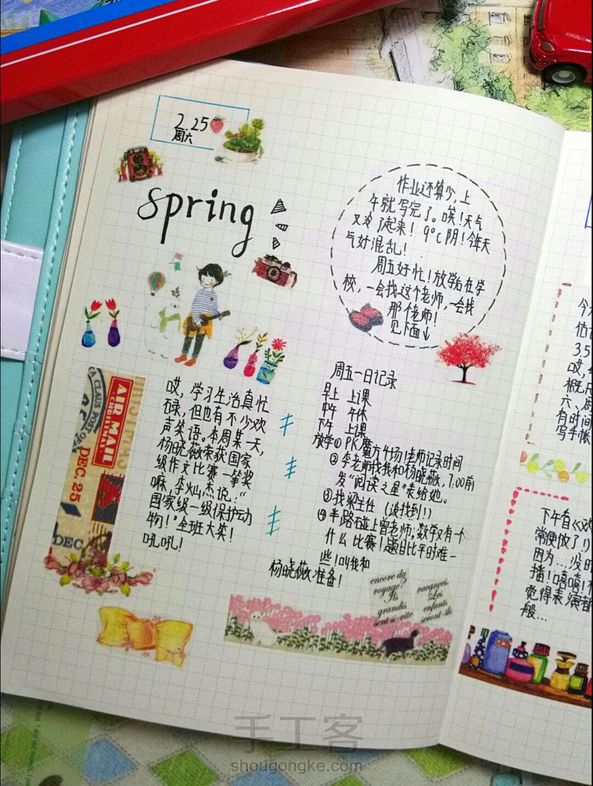 2.25
周六
spring
作业还算少,上
午就写完了。唉!天气
又冷了起来!9℃阴!今天
气好混乱!
周五好忙!放学后在学
校,一会找这个老师,一会找
那个老师!
见下面↓
哎,学习生活真忙
碌,但也有不少欢
声笑语。本周某一天,
杨晓薇荣获国家
级作文比赛一等奖
嘛,李灿杰说:“
国家级一级保护动
物!”全班大笑!
吼吼!
周五一日记录
早上 上课
中午 午休
下午 上课
放学①PK魔方千场!老师记录时间
②李老师找我和杨晓薇,7.00前
发“阅读之星”表给她。
③找班主任(没找到!)
④半路碰上曾老师,数学又有个
什么比赛!题目比平时难一
些!叫我和
杨晓薇准备!
AIR MAIL
DEC 25
DEC
encore du
voyage?
Ils
grandis
sont si vite
vacances.
Les
enfants
seront-ils
今
3.5
哎,
六、周
有时间
写手帐
下午有《
常便做了!
因为...没时
播!嘻嘻!
觉得表演
般...
手工客
shougongke.com